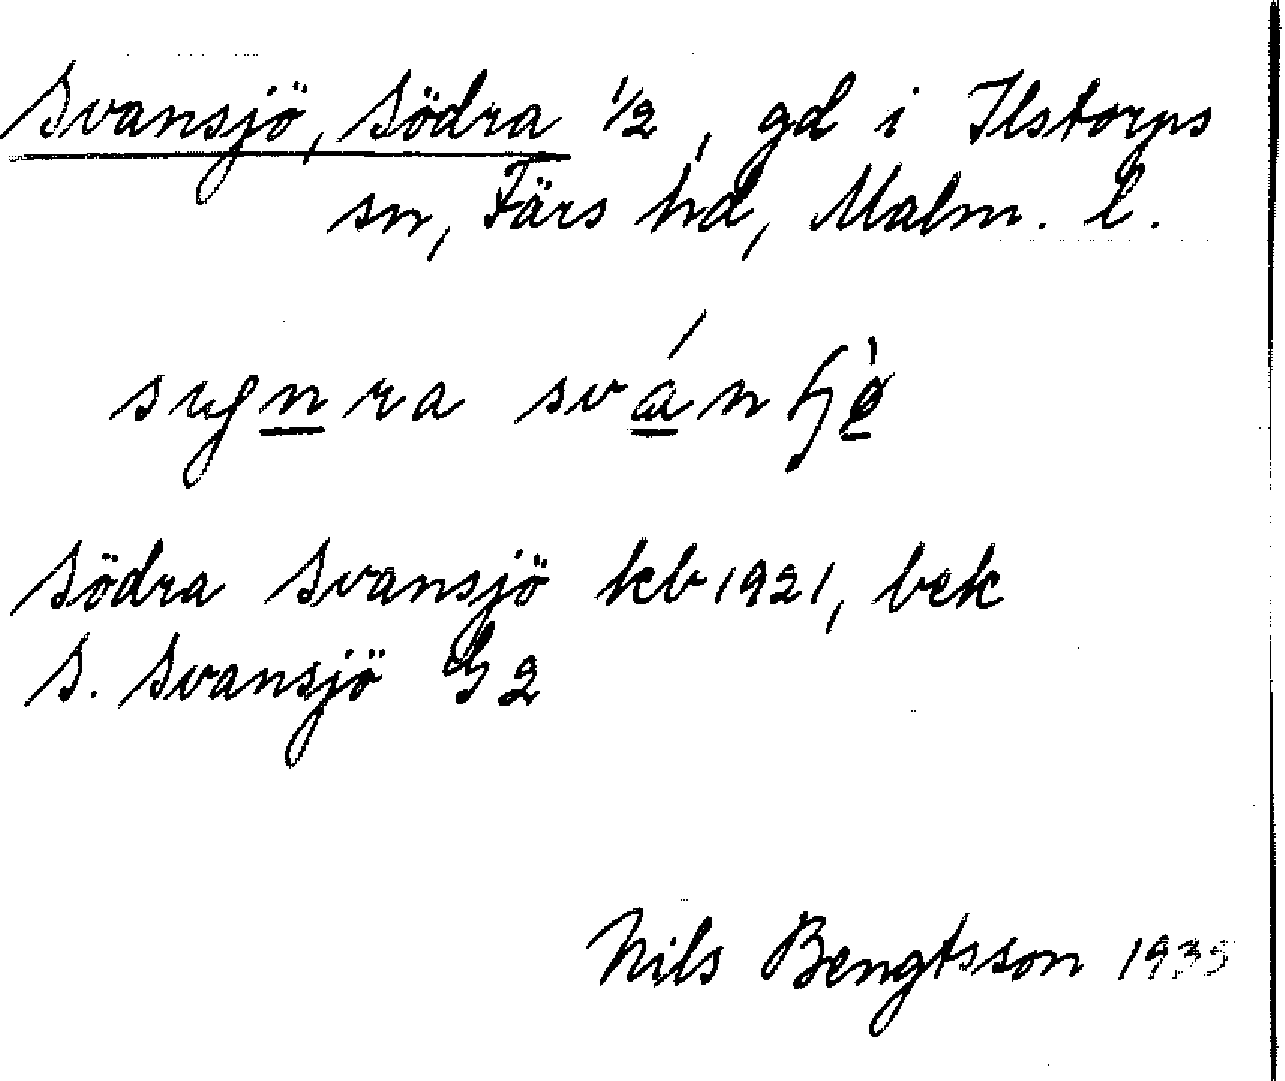 Svansjö, Södra 1/2, gd i Ilstorps
sn, Färs hd, Malm. l.
Södra Svansjö kb 1921, bek
S. Svansjö G 2
Nils Bengtsson 1935